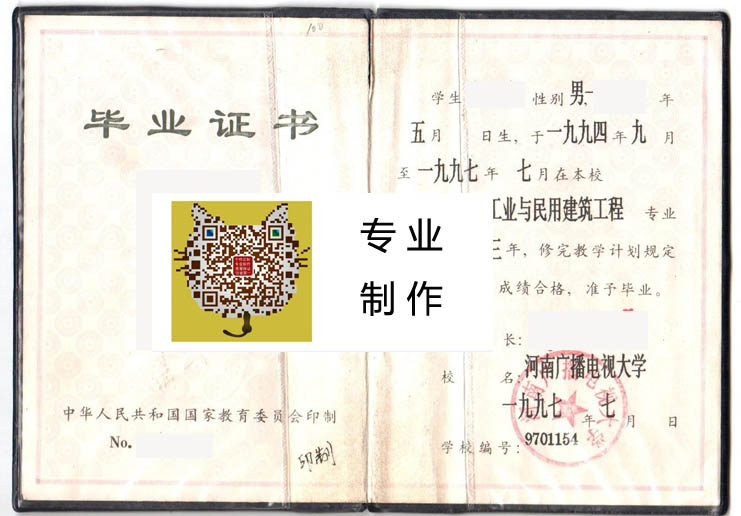 100
毕业证书
中华人民共和国国家教育委员会印制
No.
印制
专业
制作
学生 性别 男 一 年
五月 日生，于一九九四年九月
至一九九七年 七月在本校
工业与民用建筑工程 专业
三年，修完教学计划规定
成绩合格，准予毕业。
长：
校 名：河南广播电视大学
一九九七年 七月 日
学校编号：9701154
河南广播电视大学